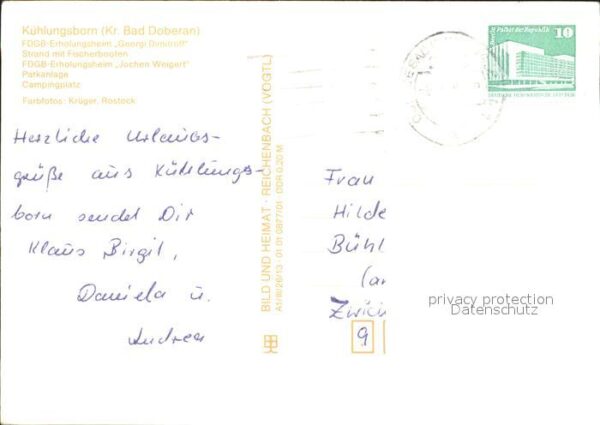 Kühlungsborn (Kr. Bad Doberan)
FDGB-Erholungsheim „Georgi Dimitroff"
Strand mit Fischerbooten
FDGB-Erholungsheim „Jochen Weigert"
Parkanlage
Campingplatz
Farbfotos: Krüger, Rostock
Herzliche Urlaubs-
grüße aus Kühlungs-
born sendet Dir
Klaus Birgit,
Daniela u.
Andrea
BILD UND HEIMAT · REICHENBACH (VOGTL)
A5/III/26/13 · 01 01 0877/01 · DDR 0,20 M
Berlin Palast der Republik
10
Frau
Hilde
Bühl
Zwick
9
privacy protection
Datenschutz